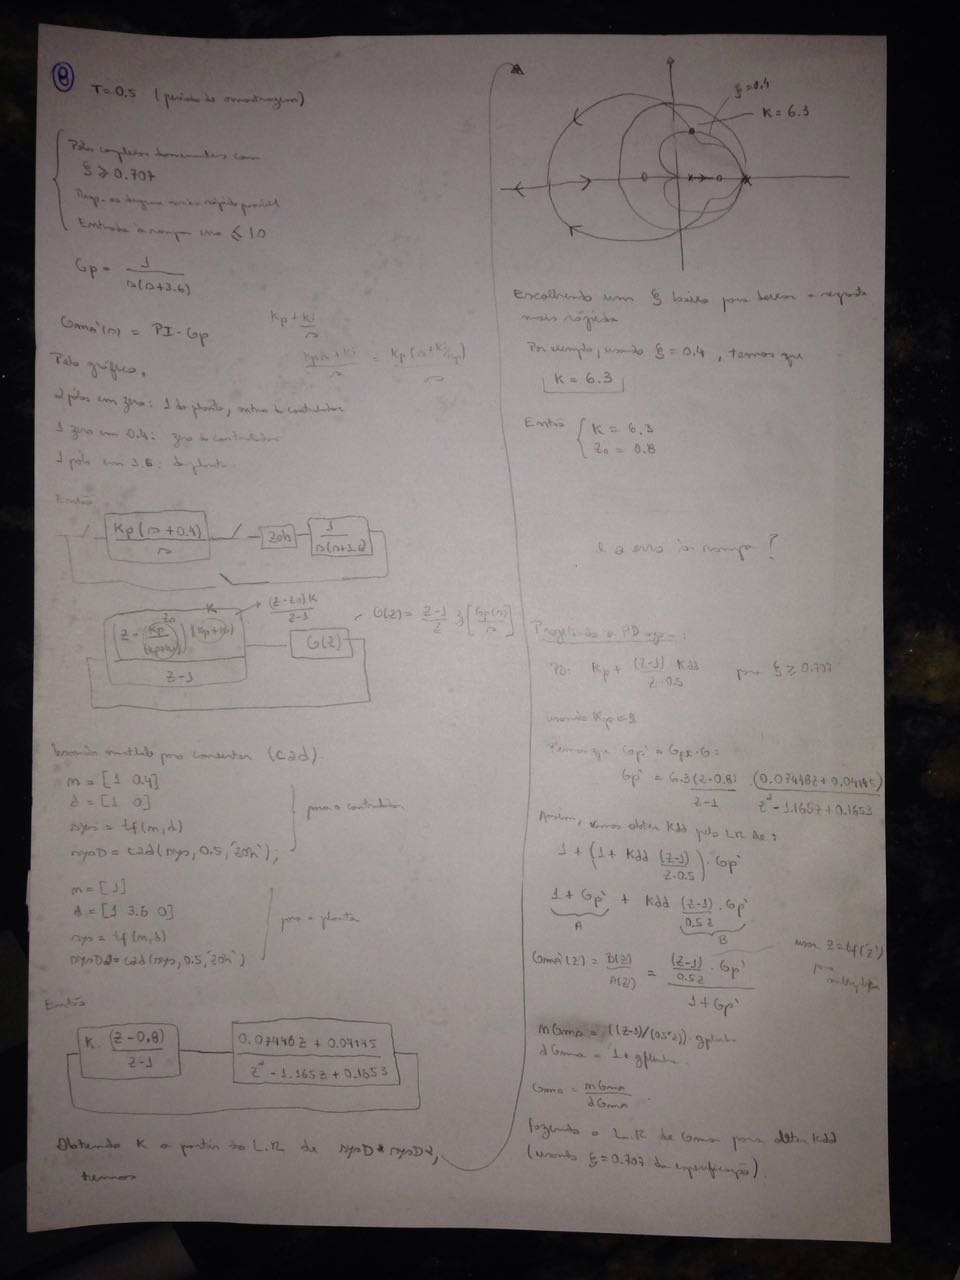 8
T=0.5 (período de amostragem)
Polos complexos dominantes com
ξ ≥ 0.707
Resp. ao degrau mais rápido possível
Entrada à rampa ≤ 10
Gp = 1/(s(s+3.6))
Gma'(s) = PI · Gp
Kp + Ki/s
(Kps + Ki)/s = Kp(s + Ki/Kp)/s
Pelo gráfico,
2 pólos em zero: 1 da planta, outro do controlador
1 zero em 0.4: zero do controlador
1 pólo em 3.6: da planta
Então
Kp(s+0.4)/s
Zoh
1/(s(s+3.6))
(z - Kp/(Kp+Ki)) (Kp+Ki)/(z-1)
z0
K
(z-z0)K/(z-1)
G(z)
G(z) = (z-1)/z Z[Gp(s)/s]
Usando matlab para converter (c2d)
n = [1 0.4]
d = [1 0]
sys = tf(n,d)
sysD = c2d(sys, 0.5, 'zoh');
para o controlador
n = [1]
d = [1 3.6 0]
sys = tf(n,d)
sysD2 = c2d(sys, 0.5, 'zoh')
para a planta
Então
K · (z-0.8)/(z-1)
(0.07446z + 0.04145)/(z² - 1.165z + 0.1653)
Obtendo K a partir do L.R de sysD*sysD2,
temos
ξ=0.4
K = 6.3
Escolhendo um ξ baixo para deixar a resposta
mais rápida
Por exemplo, usando ξ = 0.4, temos que
K = 6.3
Então { K = 6.3
z0 = 0.8
E o erro à rampa?
Projetando o PD agora:
PD: Kp + (z-1) Kdd/(z-0.5) para ξ ≥ 0.707
Usando Kp = 1
Temos que Gp' = GPI·G =
Gp' = 6.3(z-0.8)/(z-1) · (0.07446z + 0.04145)/(z² - 1.165z + 0.1653)
Assim, vamos obter Kdd pelo LR de:
1 + (1 + Kdd (z-1)/(z-0.5)) · Gp'
1 + Gp' + Kdd (z-1)/(0.5z) · Gp'
A
B
Gma'(z) = B(z)/A(z) = ((z-1)/(0.5z) · Gp')/(1+Gp')
usar z = tf('z')
para
multiplicar
nGma = ((z-1)/(0.5*z)) · gplinha
dGma = 1 + gplinha
Gma = nGma/dGma
Fazendo o L.R de Gma para obter Kdd
(usando ξ = 0.707 da especificação)